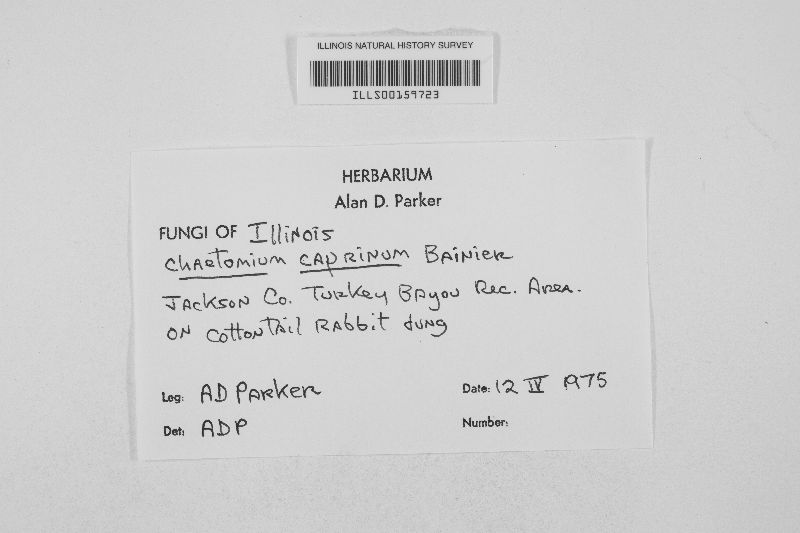 ILLINOIS NATURAL HISTORY SURVEY
ILLS00159723
HERBARIUM
Alan D. Parker
FUNGI OF Illinois
Chaetomium caprinum Bainier
Jackson Co. Turkey Bayou Rec. Area.
on cottontail rabbit dung
Leg: AD Parker
Date: 12 IV 1975
Det: ADP
Number: